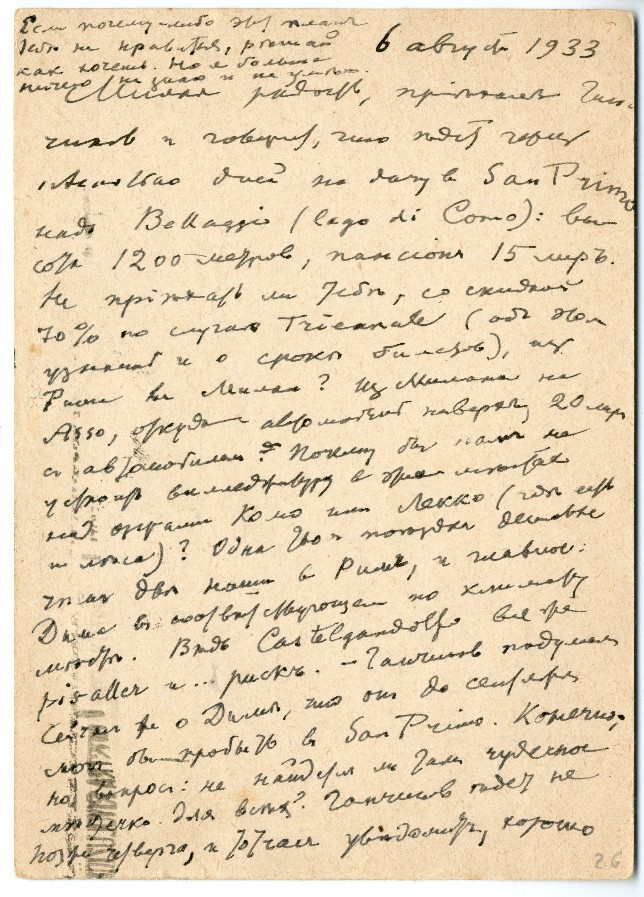 Если почему-либо этот планъ
Тебѣ не нравится, рѣшай
как хочешь. Но я больше
ничего не знаю и не умѣю.
6 август 1933
Милая радость, пріѣхал Ган-
чиков и говорит, что ѣдет через
нѣсколько дней на дачу в San Primo
надъ Bellaggio (lago di Como): вы-
сота 1200 метров, пансіонъ 15 лиръ.
Не пріѣхать ли Тебѣ, со скидкой
70% по случаю Triennale (объ этом
узнавай и о срокѣ билетов), из
Рима в Милан? Из Милана на
Asso, откуда автомобиль наверх, 20 лир
с автомобилем? Почему бы нам не
устроить виллежіатуру в этих мѣстах
над озерами Комо или Лекко (гдѣ есть
и мѣста)? Одна Твоя поѣздка дешевле
чѣм двѣ наши в Рим, и главное:
Дима в соотвѣтствующем по климату
мѣстѣ. Вѣдь Castelgandolfo все же
pis aller и... рискъ. – Ганчиков подумал
сейчас же о Димѣ, что он до сентября
мог бы пробыть в San Primo. Конечно,
но вопрос: не найдется ли там чудесное
мѣстечко для всѣх? Ганчиков ѣдет не
позже четверга, и тотчас увѣдомит, хорошо
26